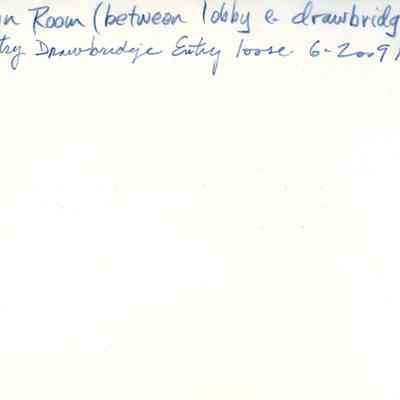 n Room (between lobby & drawbridg
try Drawbridge Entry loose 6-2009